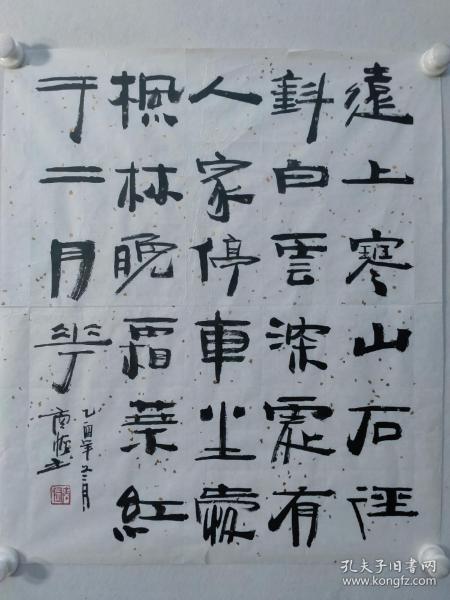 遠上寒山石径
斜白雲深處有
人家停車坐愛
楓林晚霜葉紅
于二月花
乙酉年 月
孔夫子旧书网
www.kongfz.com